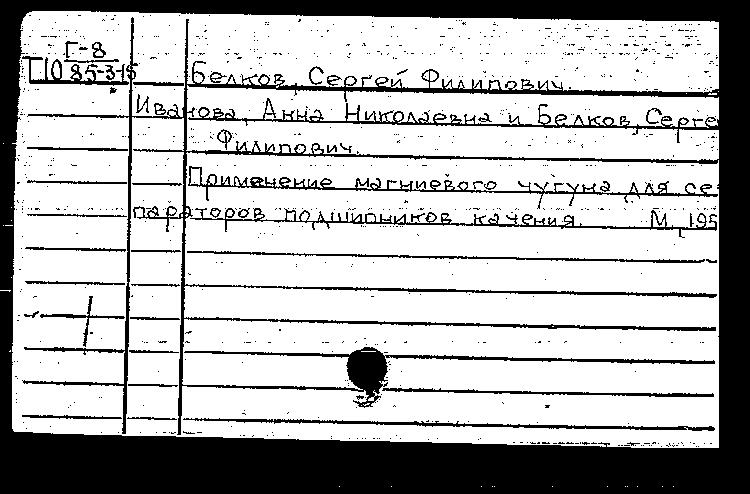 Г-8
П10 85-3-15
Белков, Сергей Филипович.
Иванова, Анна Николаевна и Белков, Серге
Филипович.
Применение магниевого чугуна для се-
параторов подшипников качения. М., 195